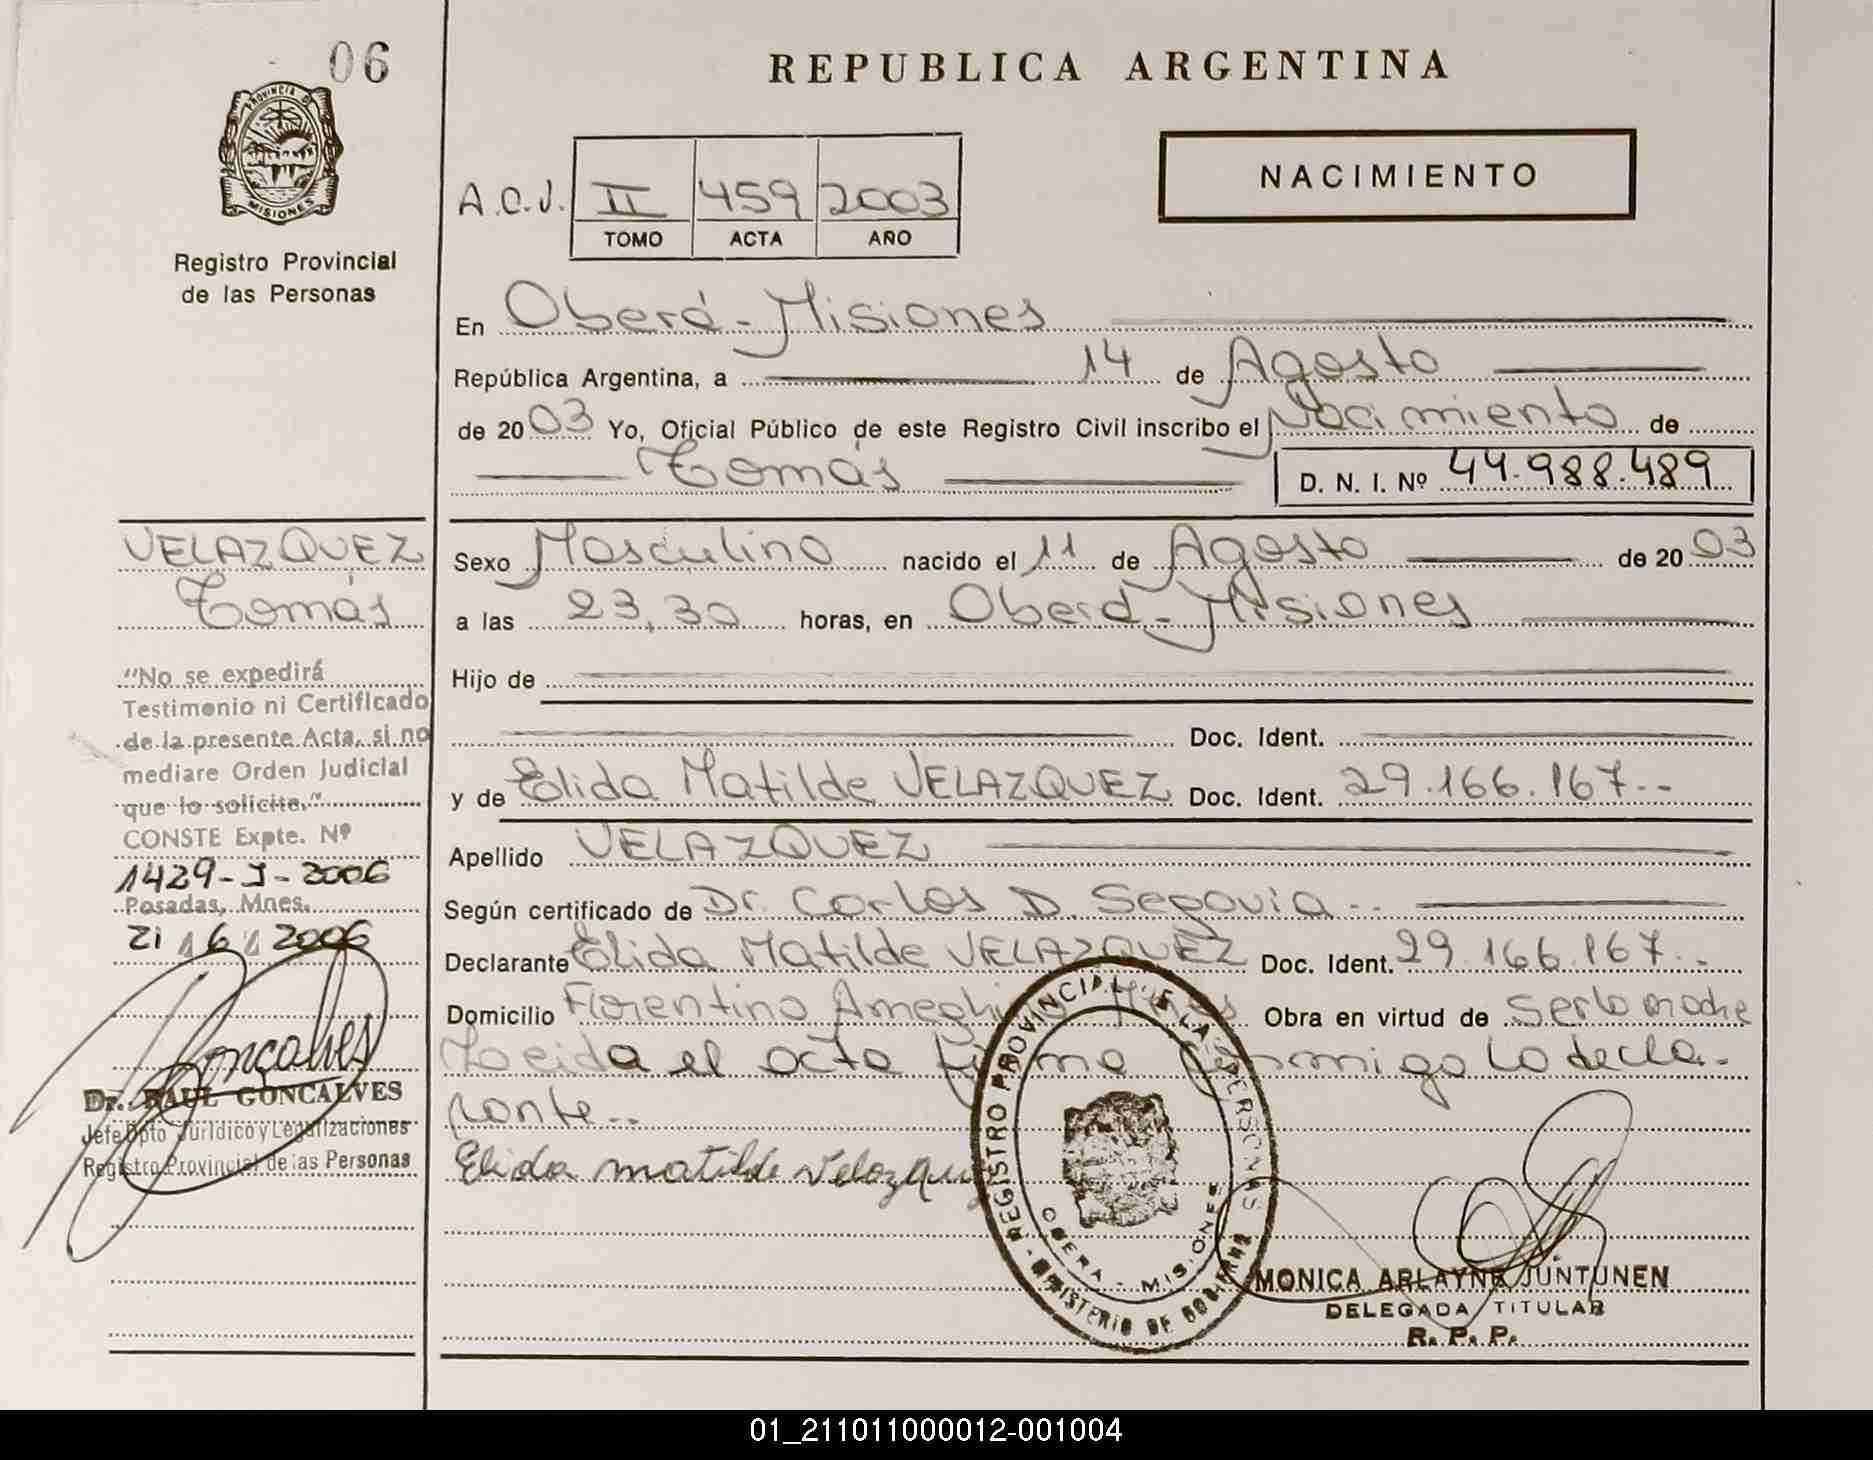 06
PROVINCIA DE
MISIONES
Registro Provincial
de las Personas
REPUBLICA ARGENTINA
NACIMIENTO
A.C.J. II 459 2003
TOMO ACTA AÑO
En Oberá - Misiones
República Argentina, a 14 de Agosto
de 2003 Yo, Oficial Público de este Registro Civil inscribo el Nacimiento de
Tomás
D. N. I. Nº 44.988.489
VELAZQUEZ
Tomás
Sexo Masculino nacido el 11 de Agosto de 2003
a las 23,30 horas, en Oberá - Misiones
Hijo de
Doc. Ident.
y de Elida Matilde VELAZQUEZ Doc. Ident. 29.166.167.--
Apellido VELAZQUEZ
Según certificado de Dr. Carlos D. Segovia..
Declarante Elida Matilde VELAZQUEZ Doc. Ident. 29.166.167..
Domicilio Florentino Ameghino Obra en virtud de ser la madre
Leida el acta firma conmigo la decla-
rante..
Elida matilde Velazquez
"No se expedirá
Testimonio ni Certificado
de la presente Acta, si no
mediare Orden Judicial
que lo solicite."
CONSTE Expte. Nº
1429-J-2006
Posadas, Mnes.
21/6/2006
Goncalves
Dr. RAUL GONCALVES
Jefe Dpto Jurídico y Legalizaciones
Registro Provincial de las Personas
REGISTRO PROVINCIAL DE LAS PERSONAS
OBERA - MISIONES
MINISTERIO DE GOBIERNO
MONICA ARLAYNE JUNTUNEN
DELEGADA TITULAR
R. P. P.
01_211011000012-001004